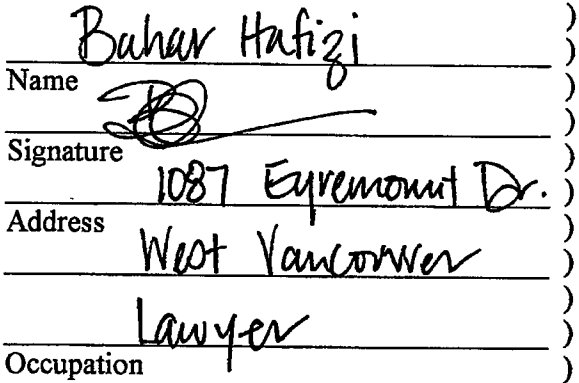 Bahar Hafizi )
Name )
)
Signature )
1087 Eyremount Dr. )
Address )
West Vancouver )
)
Lawyer )
Occupation )